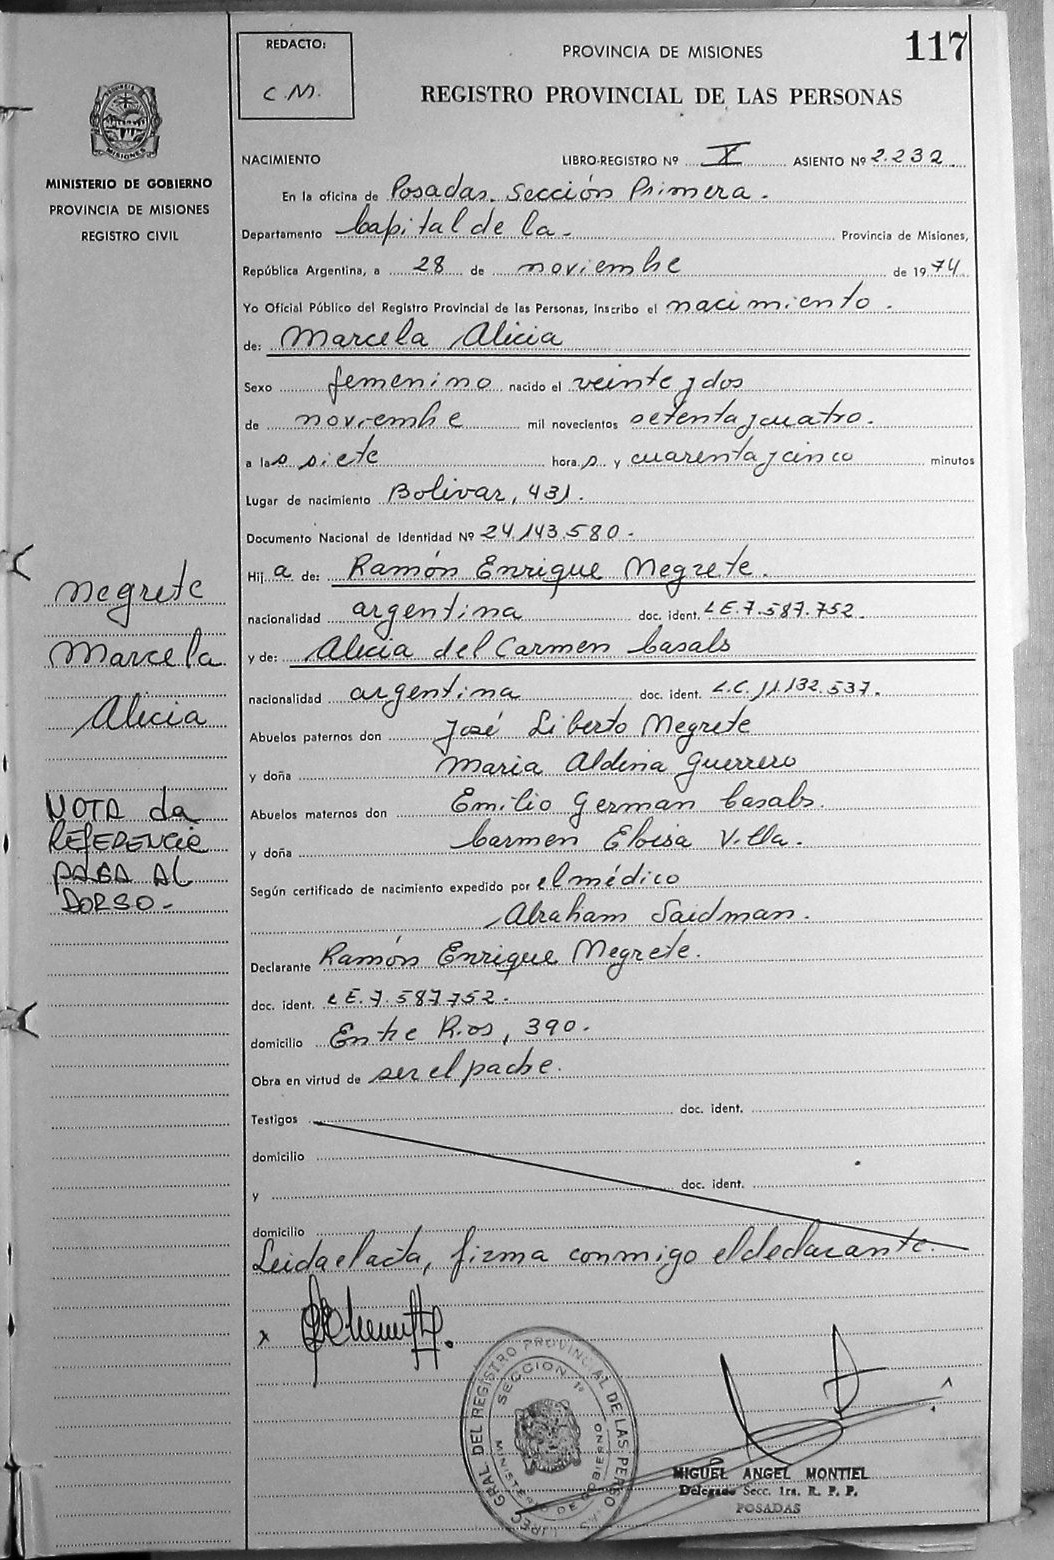 REDACTO:
C.M.
PROVINCIA DE MISIONES
117
REGISTRO PROVINCIAL DE LAS PERSONAS
PROVINCIA DE
MISIONES
MINISTERIO DE GOBIERNO
PROVINCIA DE MISIONES
REGISTRO CIVIL
NACIMIENTO LIBRO-REGISTRO Nº X ASIENTO Nº 2.232
En la oficina de Posadas. Sección Primera.
Departamento Capital de la. Provincia de Misiones,
República Argentina, a 28 de noviembre de 1974
Yo Oficial Público del Registro Provincial de las Personas, inscribo el nacimiento.
de: Marcela Alicia
Sexo femenino nacido el veinte y dos
de noviembre mil novecientos setenta y cuatro.
a las siete horas y cuarenta y cinco minutos
Lugar de nacimiento Bolivar, 431.
Documento Nacional de Identidad Nº 24.143.580.
Hija de: Ramón Enrique Negrete.
nacionalidad argentina doc. ident. L.E.7.587.752.
y de: Alicia del Carmen Casals
nacionalidad argentina doc. ident. L.C.11.132.537.
Abuelos paternos don José Liberto Negrete
y doña Maria Aldina Guerrero
Abuelos maternos don Emilio German Casals.
y doña Carmen Eloisa Villa.
Según certificado de nacimiento expedido por el médico
Abraham Saidman.
Declarante Ramón Enrique Negrete.
doc. ident. L.E.7.587752.
domicilio Entre Rios, 390.
Obra en virtud de ser el padre.
Testigos doc. ident.
domicilio
y doc. ident.
domicilio
Leida el acta, firma conmigo el declarante.
x
Negrete
Marcela
Alicia
NOTA da
REFERENCIA
PASA AL
DORSO-
DIREC. GRAL. DEL REGISTRO PROVINCIAL DE LAS PERSONAS
SECCION 1ª
MINISTERIO DE GOBIERNO
MIGUEL ANGEL MONTIEL
Delegado Secc. 1ra. R. P. P.
POSADAS